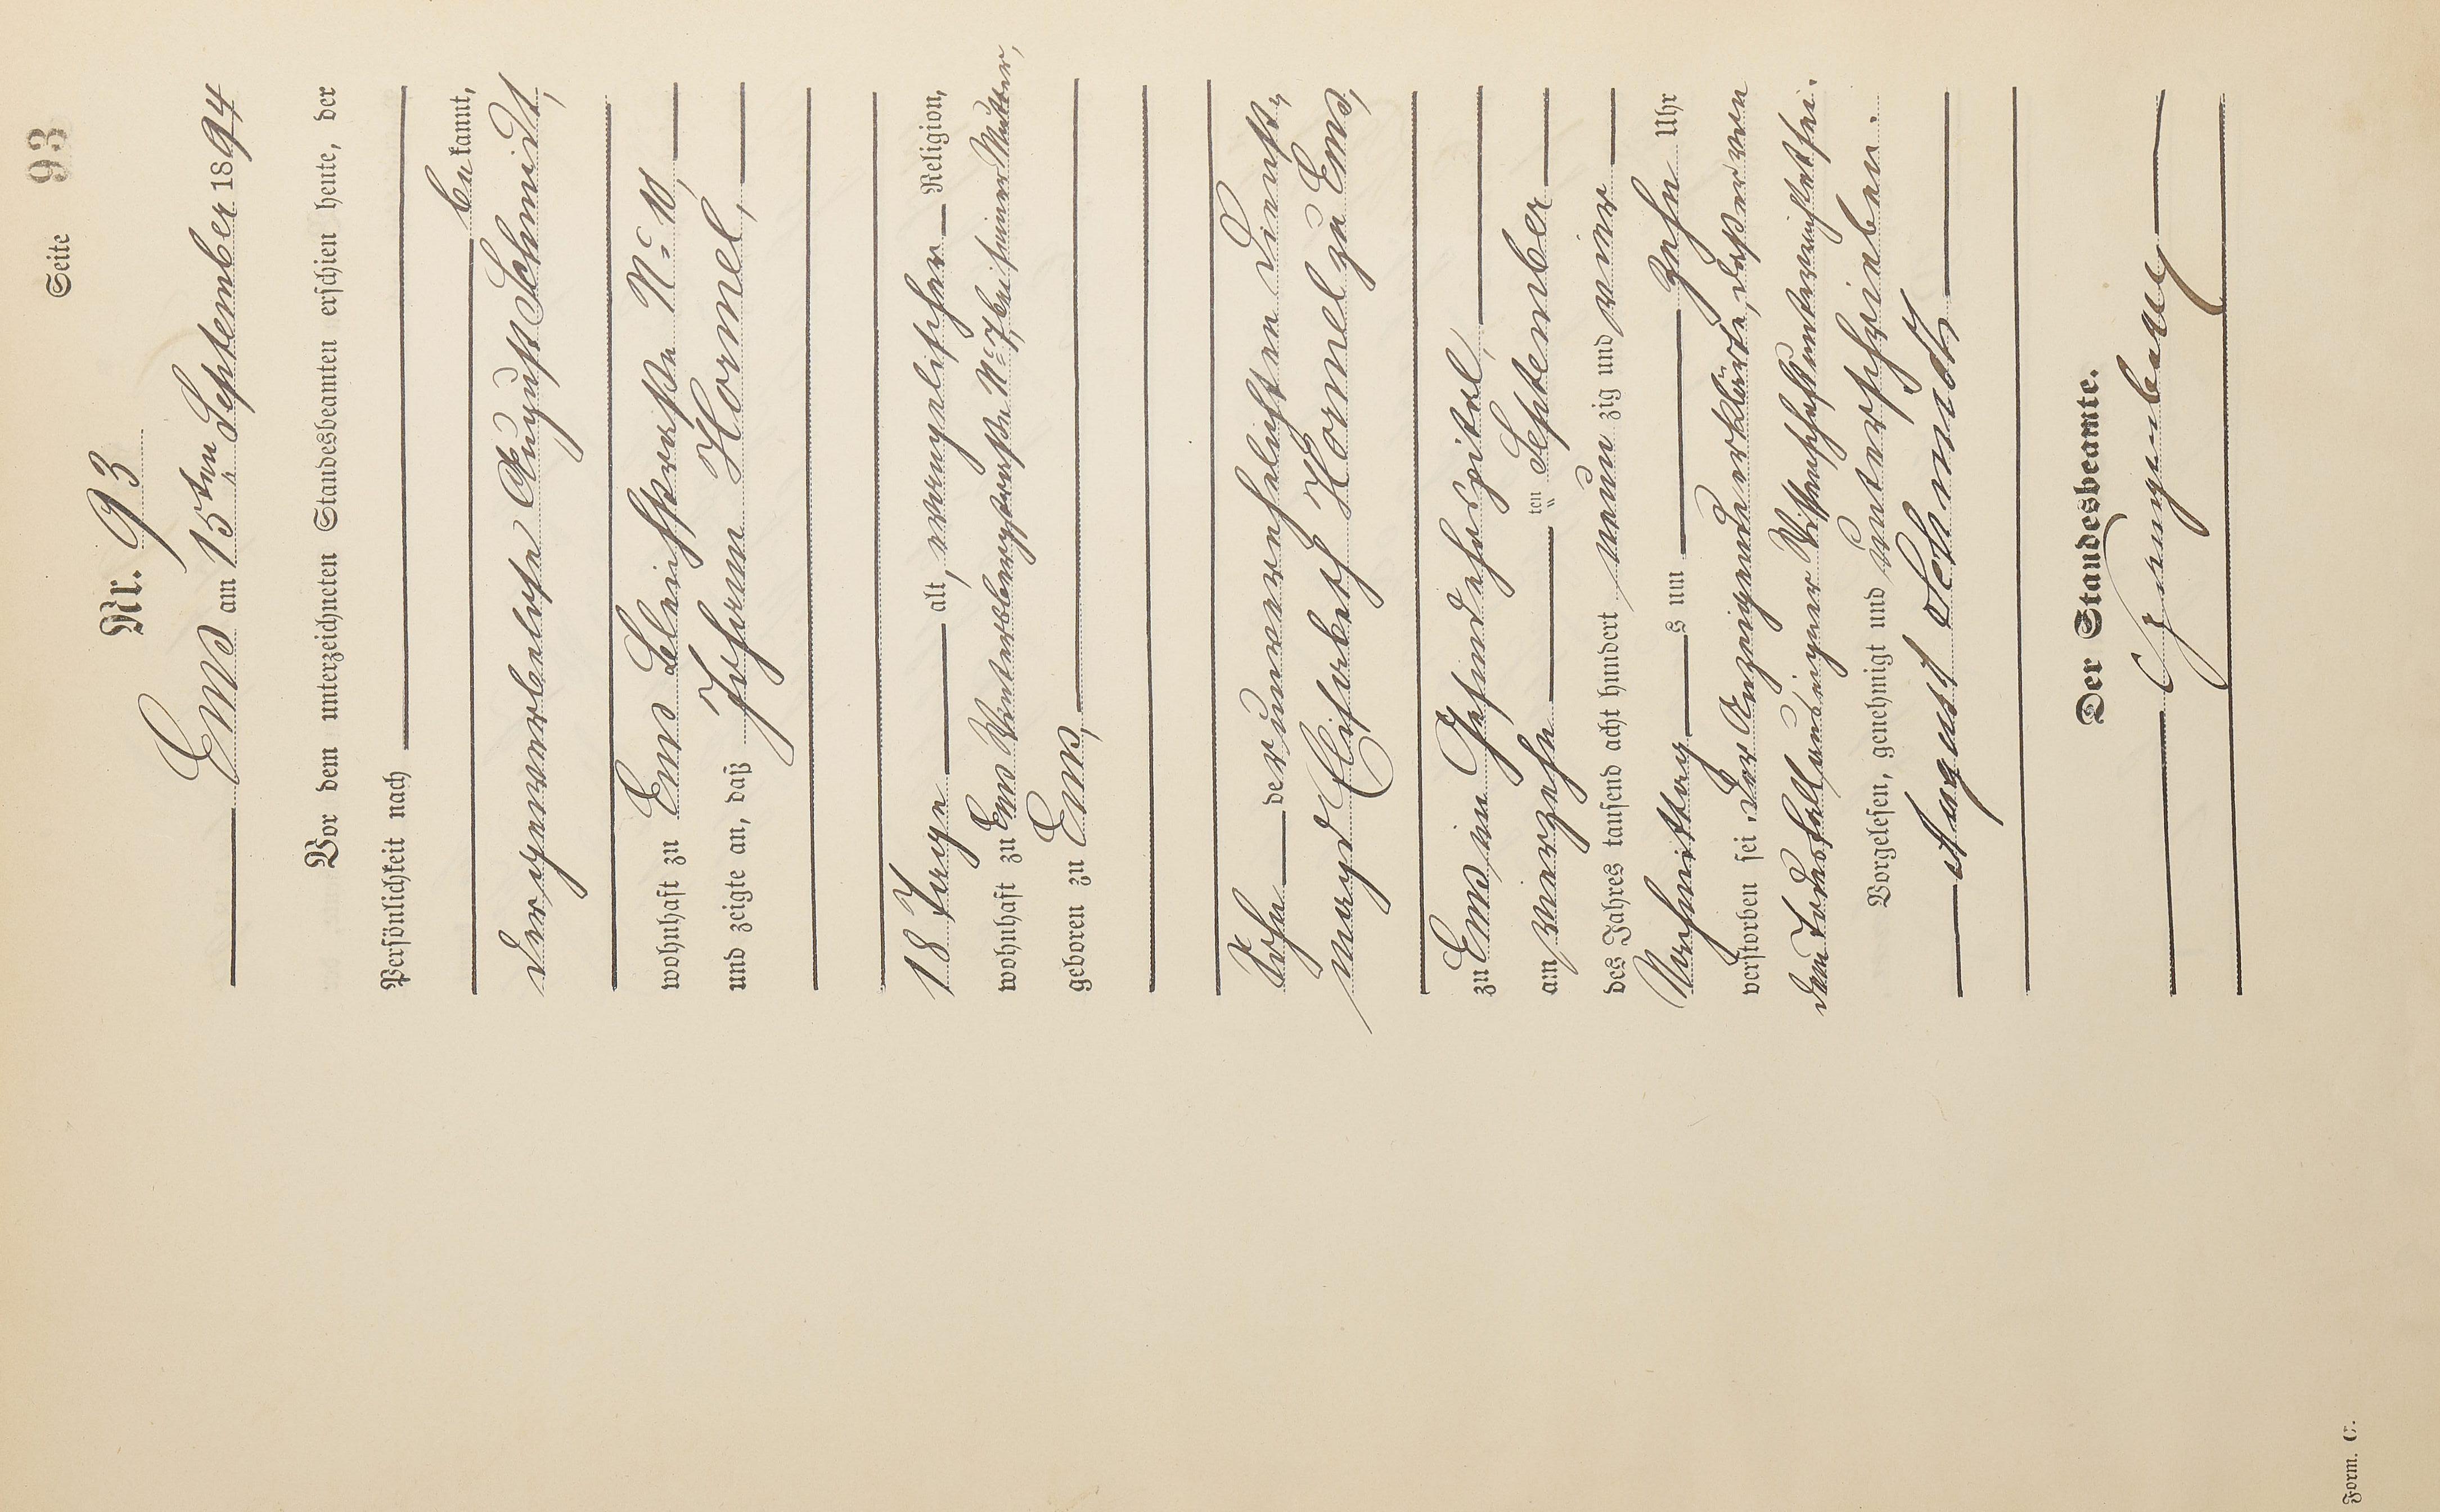 Seite 93
Nr. 93
Ems am 15ten September 1894
Vor dem unterzeichneten Standesbeamten erschien heute, der
Persönlichkeit nach
be kannt,
der August Schmidt,
wohnhaft zu Ems Bleichstrasse No 10,
und zeigte an, daß Johann Hormel,
18 Jahre alt, evangelischer Religion,
wohnhaft zu Ems Wintersbergstrasse No 7, bei seiner Mutter,
geboren zu Ems,
Sohn der unverehelichten Dienst-
magd Elisabeth Hormel zu Ems,
zu Ems im
am vierzehn ten September
des Jahres tausend acht hundert neun zig und vier
Nachmittag s um zehn Uhr
verstorben sei. Der Anzeigende erklärte, daß er von
dem Todesfall aus eigener Wissenschaft unterrichtet sei.
Vorgelesen, genehmigt und unterschrieben.
August Schmidt
Der Standesbeamte.
Form. C.